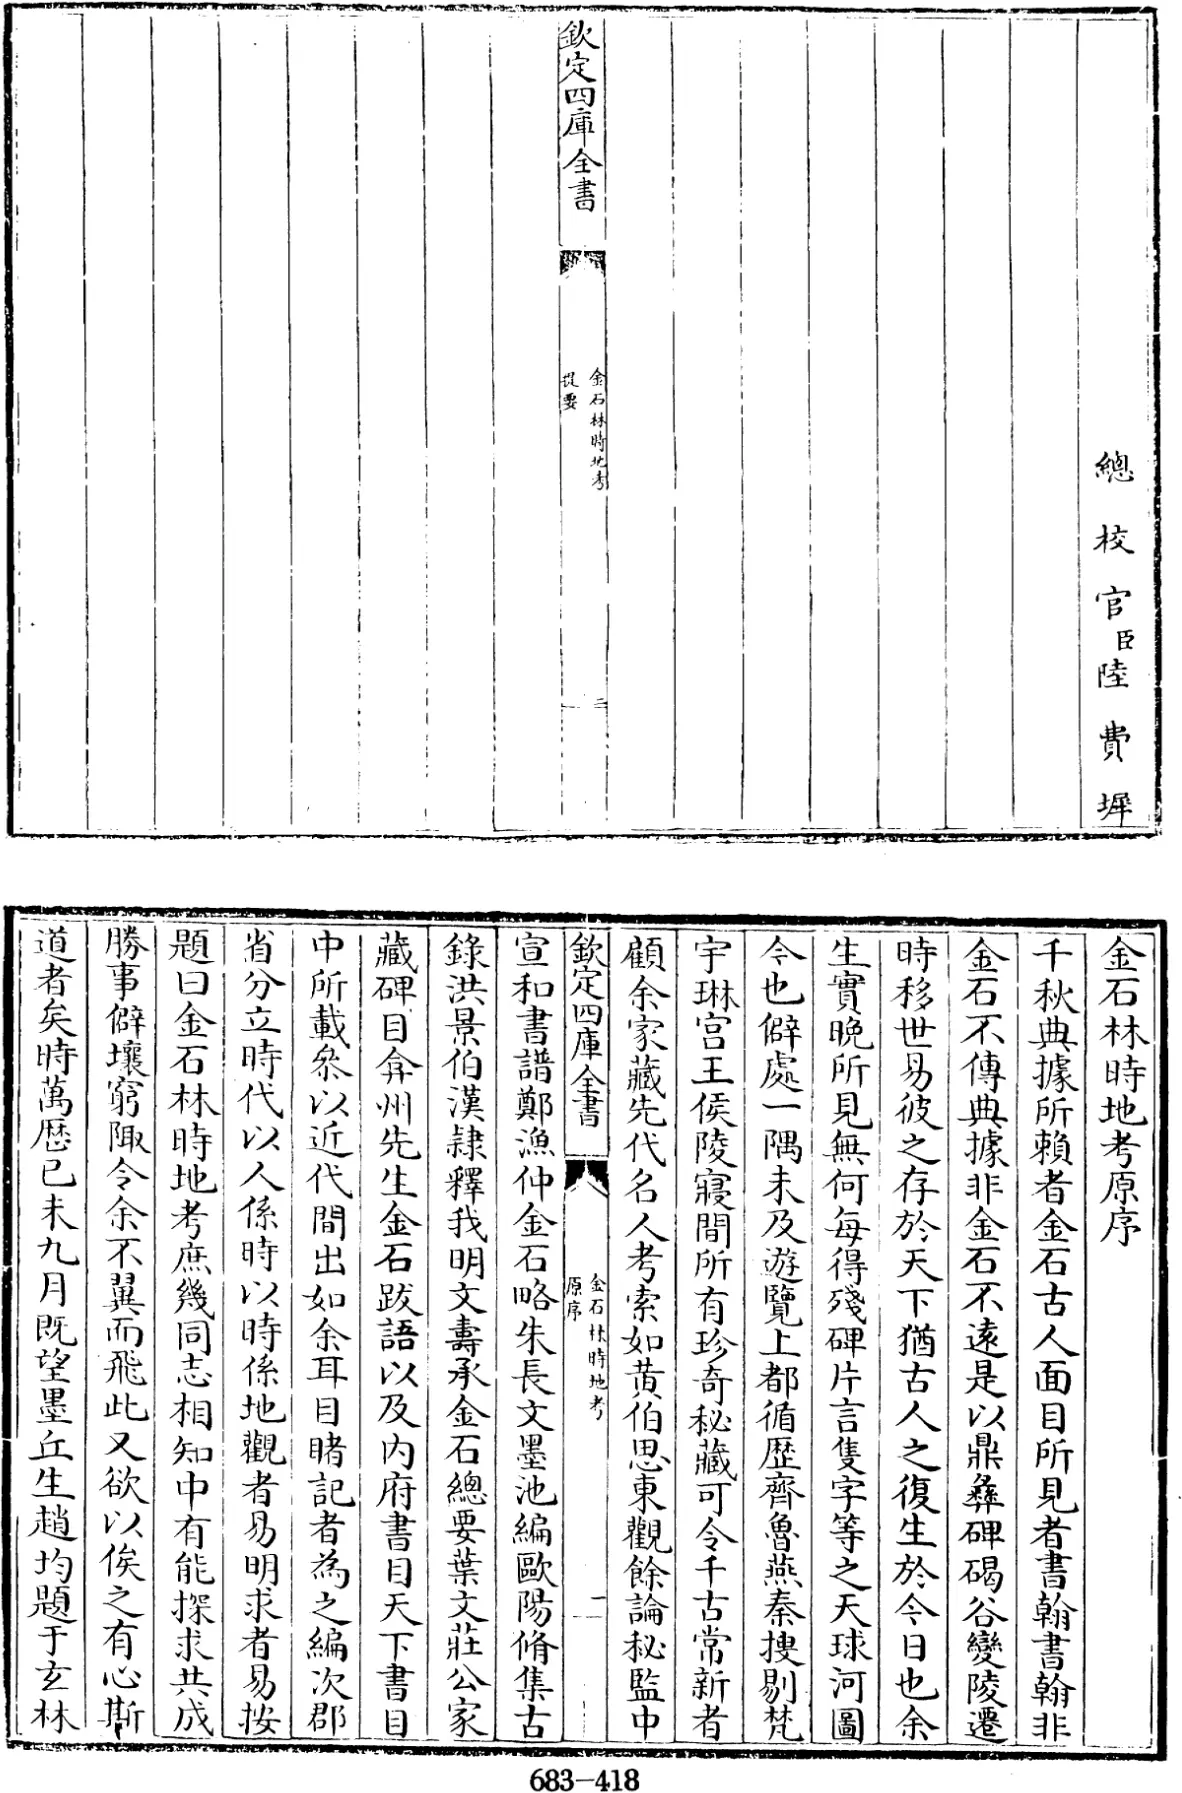 總校官臣陸費墀
欽定四庫全書
金石林時地考
提要
二
金石林時地考原序
千秋典據所賴者金石古人面目所見者書翰書翰非
金石不傳典據非金石不遠是以鼎彝碑碣谷變陵遷
時移世易彼之存於天下猶古人之復生於今日也余
生實晚所見無何每得殘碑片言隻字等之天球河圖
令也僻處一隅未及遊覽上都循歷齊魯燕秦搜剔梵
宇琳宫王侯陵寢間所有珍奇秘藏可令千古常新者
顧余家藏先代名人考索如黄伯思東觀餘論秘監中
欽定四庫全書
金石林時地考
原序
一
宣和書譜鄭漁仲金石略朱長文墨池編歐陽脩集古
錄洪景伯漢隸釋我明文壽承金石總要葉文莊公家
藏碑目弇州先生金石跋語以及内府書目天下書目
中所載叅以近代間出如余耳目睹記者為之編次郡
省分立時代以人係時以時係地觀者易明求者易按
題曰金石林時地考庶幾同志相知中有能探求共成
勝事僻壤窮陬令余不翼而飛此又欲以俟之有心斯
道者矣時萬歷已未九月既望墨丘生趙均題于玄林
683-418